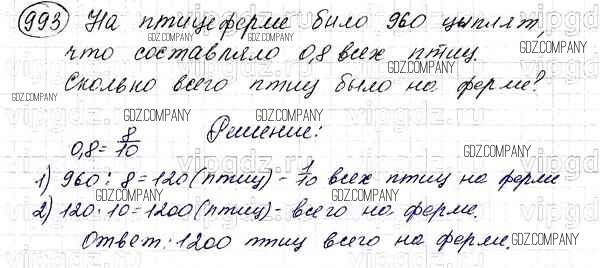 993) На птицеферме было 960 цыплят,
что составляло 0,8 всех птиц.
Сколько всего птиц было на ферме?
GDZ.COMPANY
Решение:
0,8 = 8/10
1) 960 : 8 = 120 (птиц) - 1/10 всех птиц на ферме
2) 120 · 10 = 1200 (птиц) - всего на ферме.
Ответ: 1200 птиц всего на ферме.
vipgdz.ru